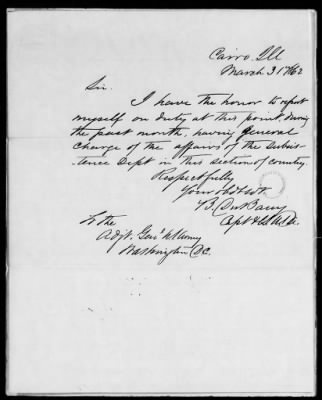 Cairo, Ill
March 31st 1862
Sir.
I have the honor to report
myself on duty at this point, during
the past month, having general
charge of the affairs of the Subsis-
tence Dept in this section of country.
Respectfully
Your obdt svt.
B. DuBarry
Capt & C.S. U.S.A.
To the
Adjt. Genl U.S. Army
Washington D.C.